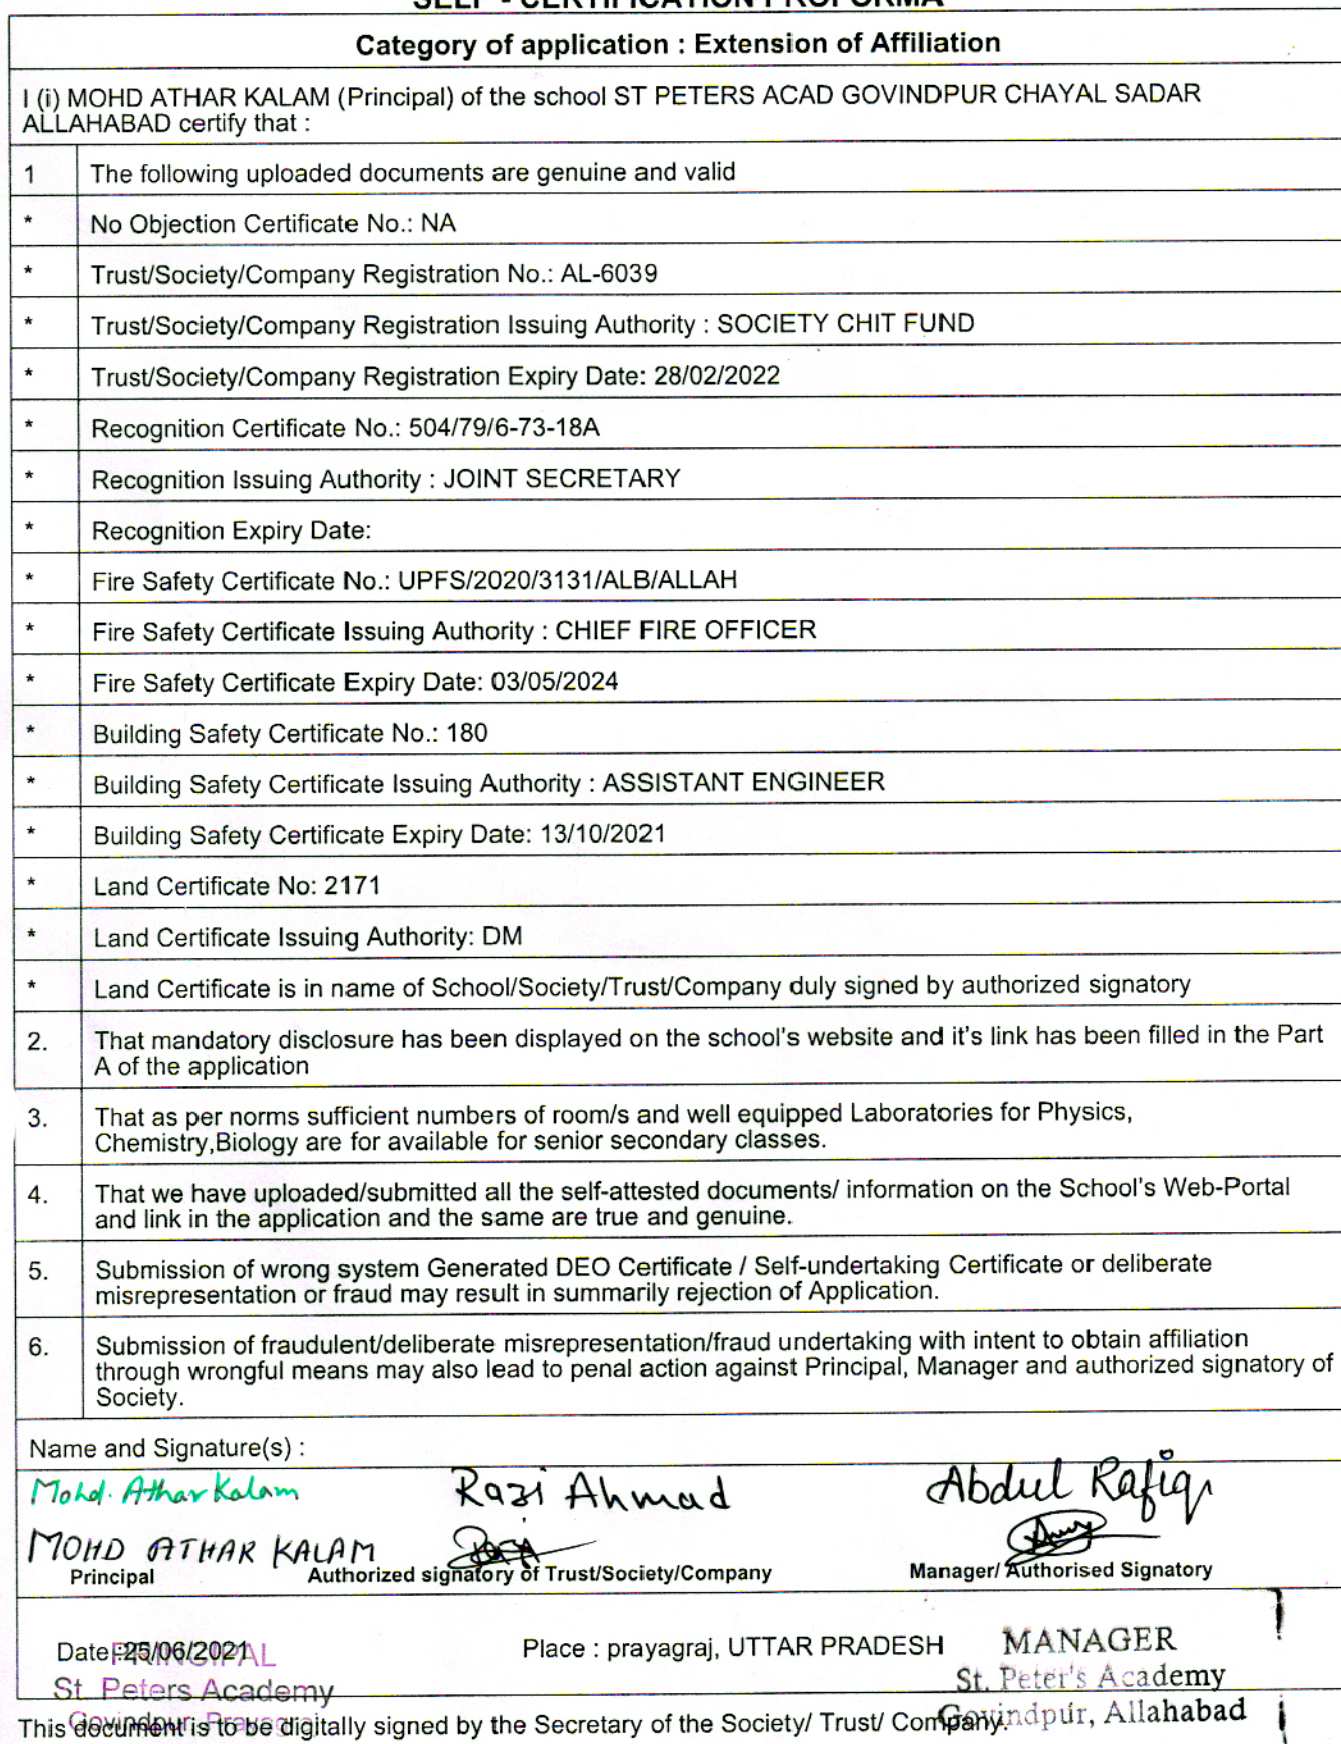 SELF - CERTIFICATION PROFORMA
Category of application : Extension of Affiliation
I (i) MOHD ATHAR KALAM (Principal) of the school ST PETERS ACAD GOVINDPUR CHAYAL SADAR
ALLAHABAD certify that :
1 The following uploaded documents are genuine and valid
* No Objection Certificate No.: NA
* Trust/Society/Company Registration No.: AL-6039
* Trust/Society/Company Registration Issuing Authority : SOCIETY CHIT FUND
* Trust/Society/Company Registration Expiry Date: 28/02/2022
* Recognition Certificate No.: 504/79/6-73-18A
* Recognition Issuing Authority : JOINT SECRETARY
* Recognition Expiry Date:
* Fire Safety Certificate No.: UPFS/2020/3131/ALB/ALLAH
* Fire Safety Certificate Issuing Authority : CHIEF FIRE OFFICER
* Fire Safety Certificate Expiry Date: 03/05/2024
* Building Safety Certificate No.: 180
* Building Safety Certificate Issuing Authority : ASSISTANT ENGINEER
* Building Safety Certificate Expiry Date: 13/10/2021
* Land Certificate No: 2171
* Land Certificate Issuing Authority: DM
* Land Certificate is in name of School/Society/Trust/Company duly signed by authorized signatory
2. That mandatory disclosure has been displayed on the school's website and it's link has been filled in the Part
A of the application
3. That as per norms sufficient numbers of room/s and well equipped Laboratories for Physics,
Chemistry,Biology are for available for senior secondary classes.
4. That we have uploaded/submitted all the self-attested documents/ information on the School's Web-Portal
and link in the application and the same are true and genuine.
5. Submission of wrong system Generated DEO Certificate / Self-undertaking Certificate or deliberate
misrepresentation or fraud may result in summarily rejection of Application.
6. Submission of fraudulent/deliberate misrepresentation/fraud undertaking with intent to obtain affiliation
through wrongful means may also lead to penal action against Principal, Manager and authorized signatory of
Society.
Name and Signature(s) :
Mohd. Athar Kalam Razi Ahmad Abdul Rafiq
MOHD ATHAR KALAM
Principal Authorized signatory of Trust/Society/Company Manager/ Authorised Signatory
Date :25/06/2021 Place : prayagraj, UTTAR PRADESH
PRINCIPAL
St. Peters Academy
Govindpur, Prayagraj
MANAGER
St. Peter's Academy
Govindpur, Allahabad
This document is to be digitally signed by the Secretary of the Society/ Trust/ Company.